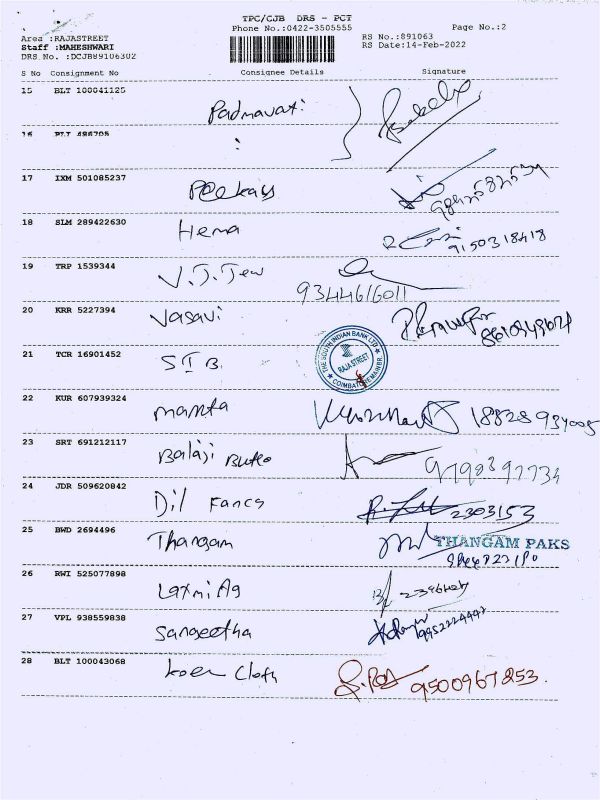 TPC/CJB DRS - PCT
Phone No.:0422-3505555
Page No.:2
Area :RAJASTREET
Staff :MAHESHWARI
DRS No. :DCJB89106302
RS No.:891063
RS Date:14-Feb-2022
S No Consignment No Consignee Details Signature
15 BLT 100041125 Padmavati
16 PLT 486705 :
17 IXM 501085237
18 SLM 289422630 Hema 9150318418
19 TRP 1539344 V.J.Jew
9344616011
20 KRR 5227394 Vasavi
21 TCR 16901452 SIB
THE SOUTH INDIAN BANK LTD
RAJA STREET
COIMBATORE MAIN BR.
22 KUR 607939324 mamta
23 SRT 691212117 Balaji
24 JDR 509620842 Dil Fancy 2303153
25 BWD 2694496 Thangam THANGAM PAKS
26 RWI 525077898 Laxmi Ag
27 VPL 938559838 Sangeetha
28 BLT 100043068 Cloth 9500967853.